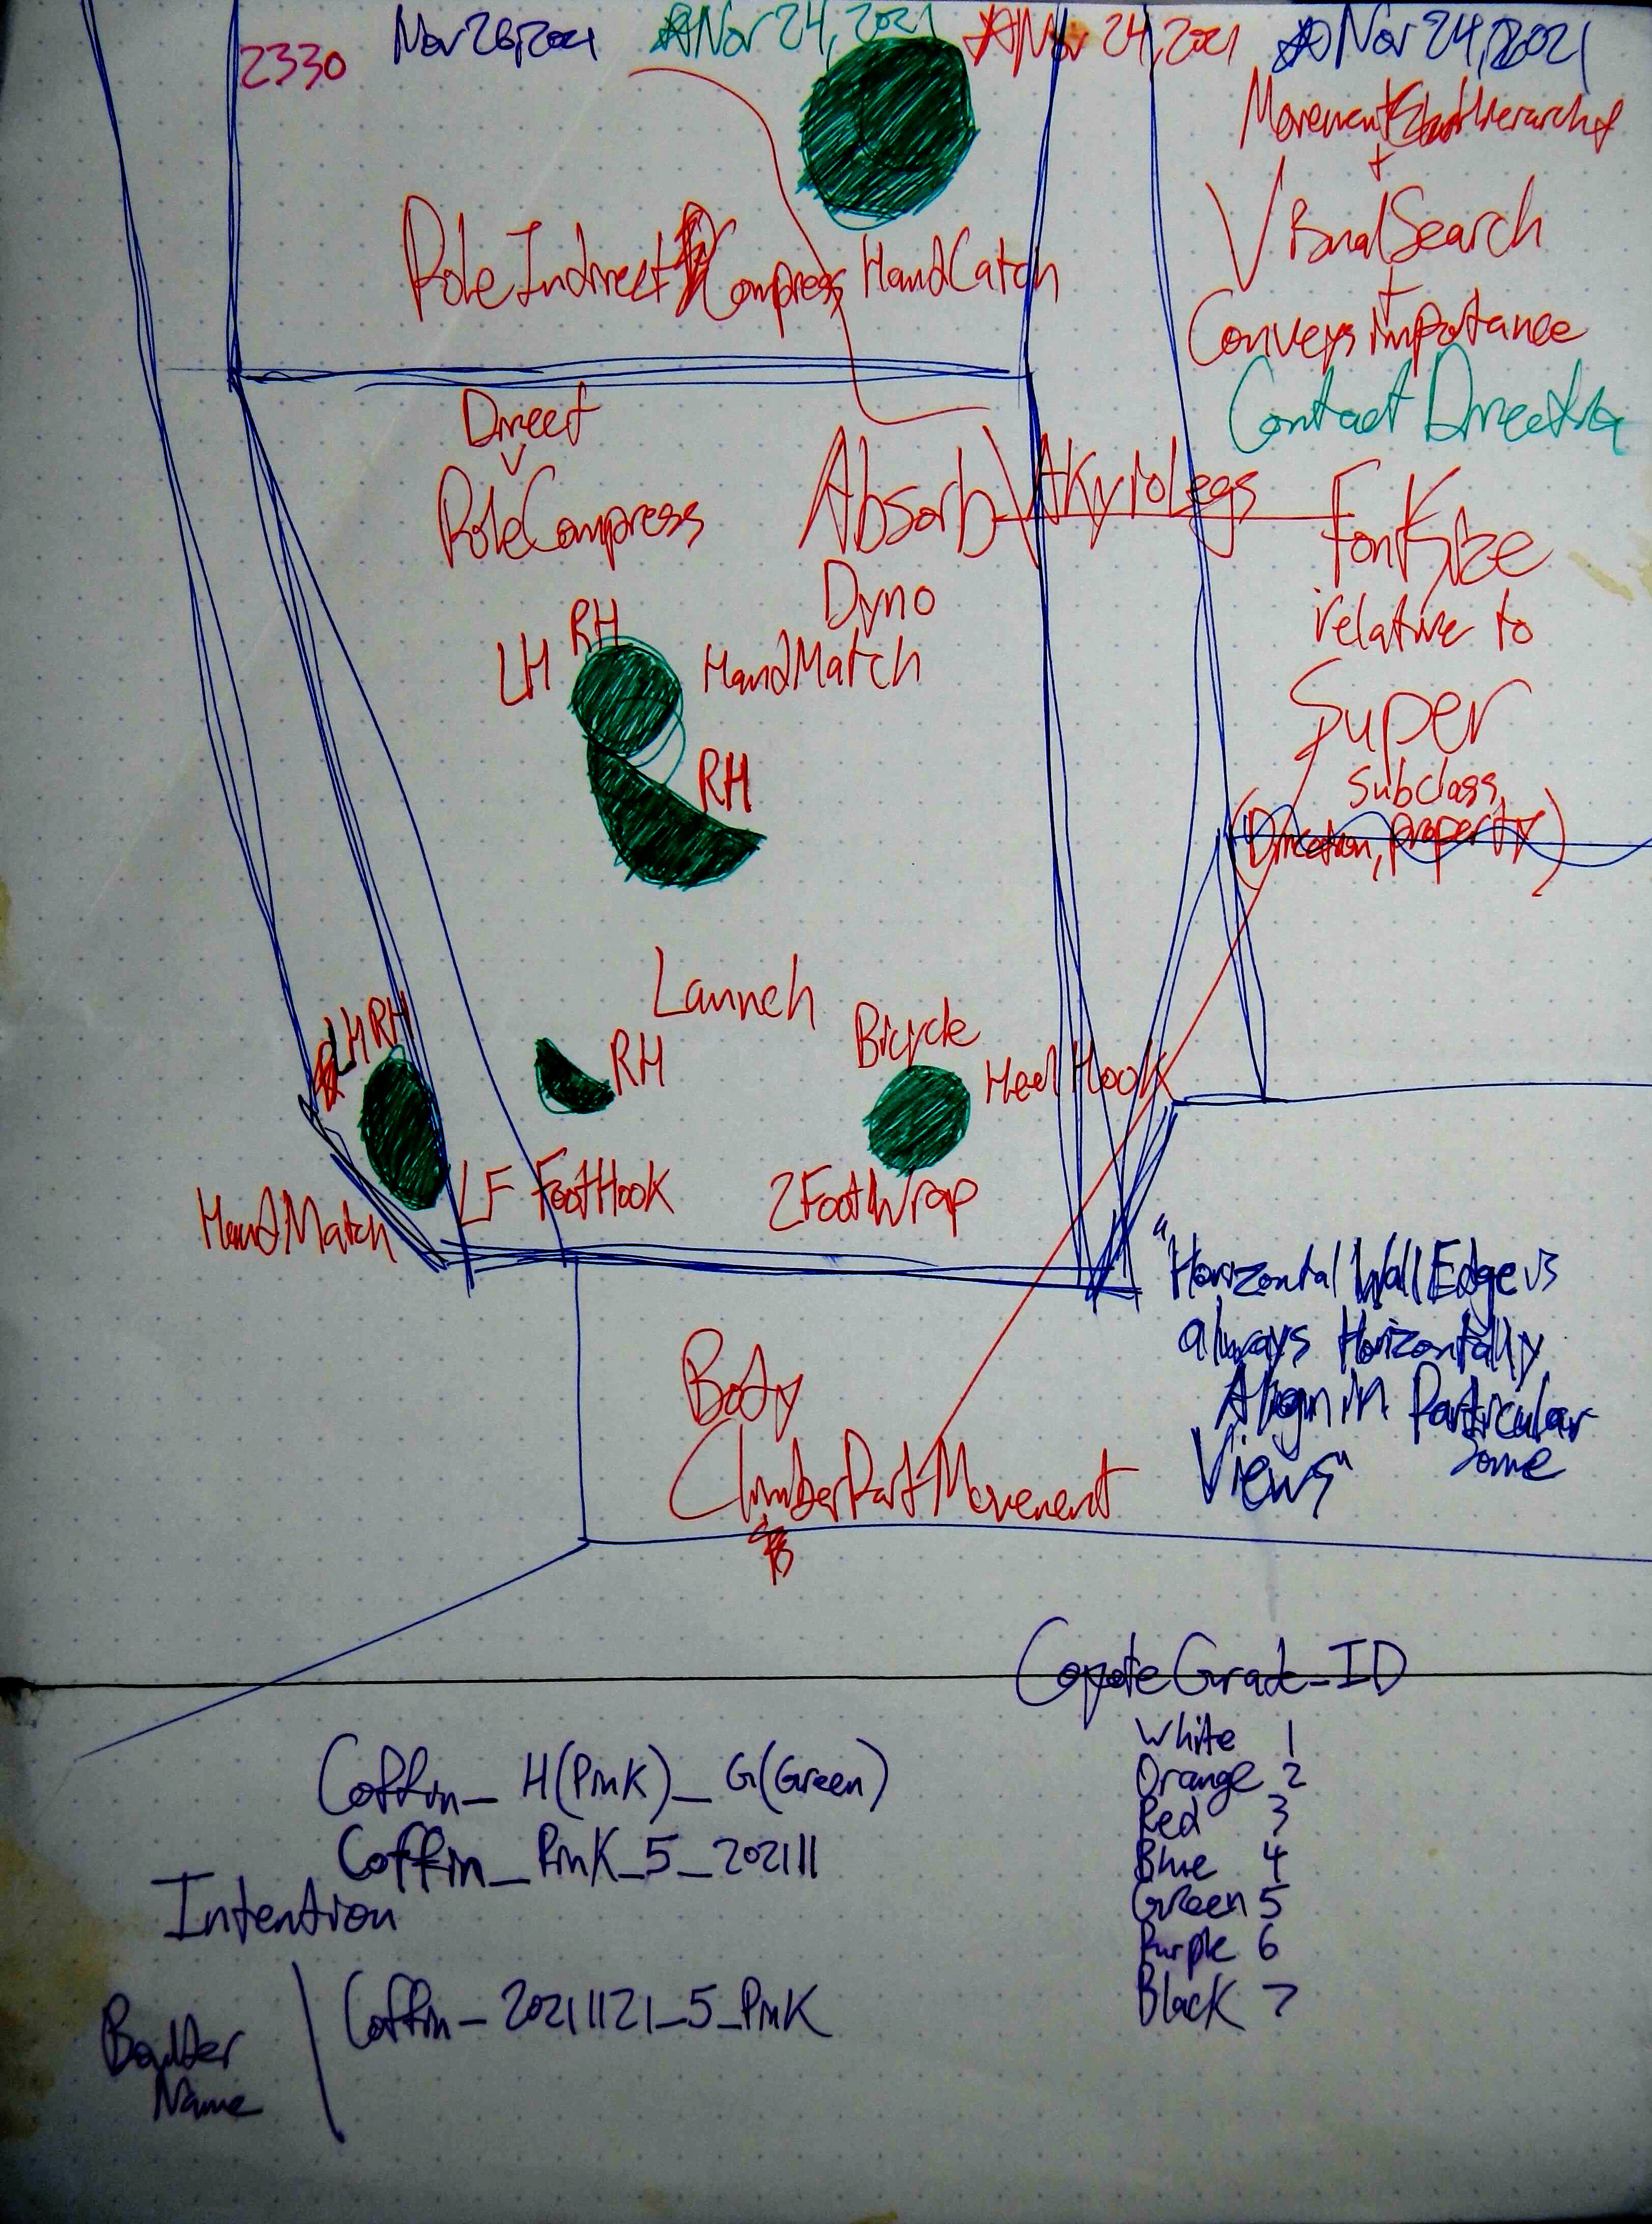 2330 Nov 26, 2021 Nov 24, 2021 Nov 24, 2021 Nov 24, 2021
Movement Hierarchy
+
Visual Search
+
Conveys importance
Contact Direction
RoleIndirect Compress HandCatch
Direct
RoleCompress
Absorb
Legs
FontSize
relative to
Super
subclass
(Direction, property)
Dyno
HandMatch
LH RH
RH
Launch
LH RH
RH
Bicycle
Heel Hook
HandMatch
LF FootHook
2FootWrap
"Horizontal Wall Edge vs
always Horizontally
Align in Particular
Views" Some
Body
ClimberPartMovement
CoyoteGrade_ID
White 1
Orange 2
Red 3
Blue 4
Green 5
Purple 6
Black 7
Coffin_ H(Pink)_ G(Green)
Coffin_Pink_5_202111
Intention
Boulder
Name
Coffin_20211121_5_Pink